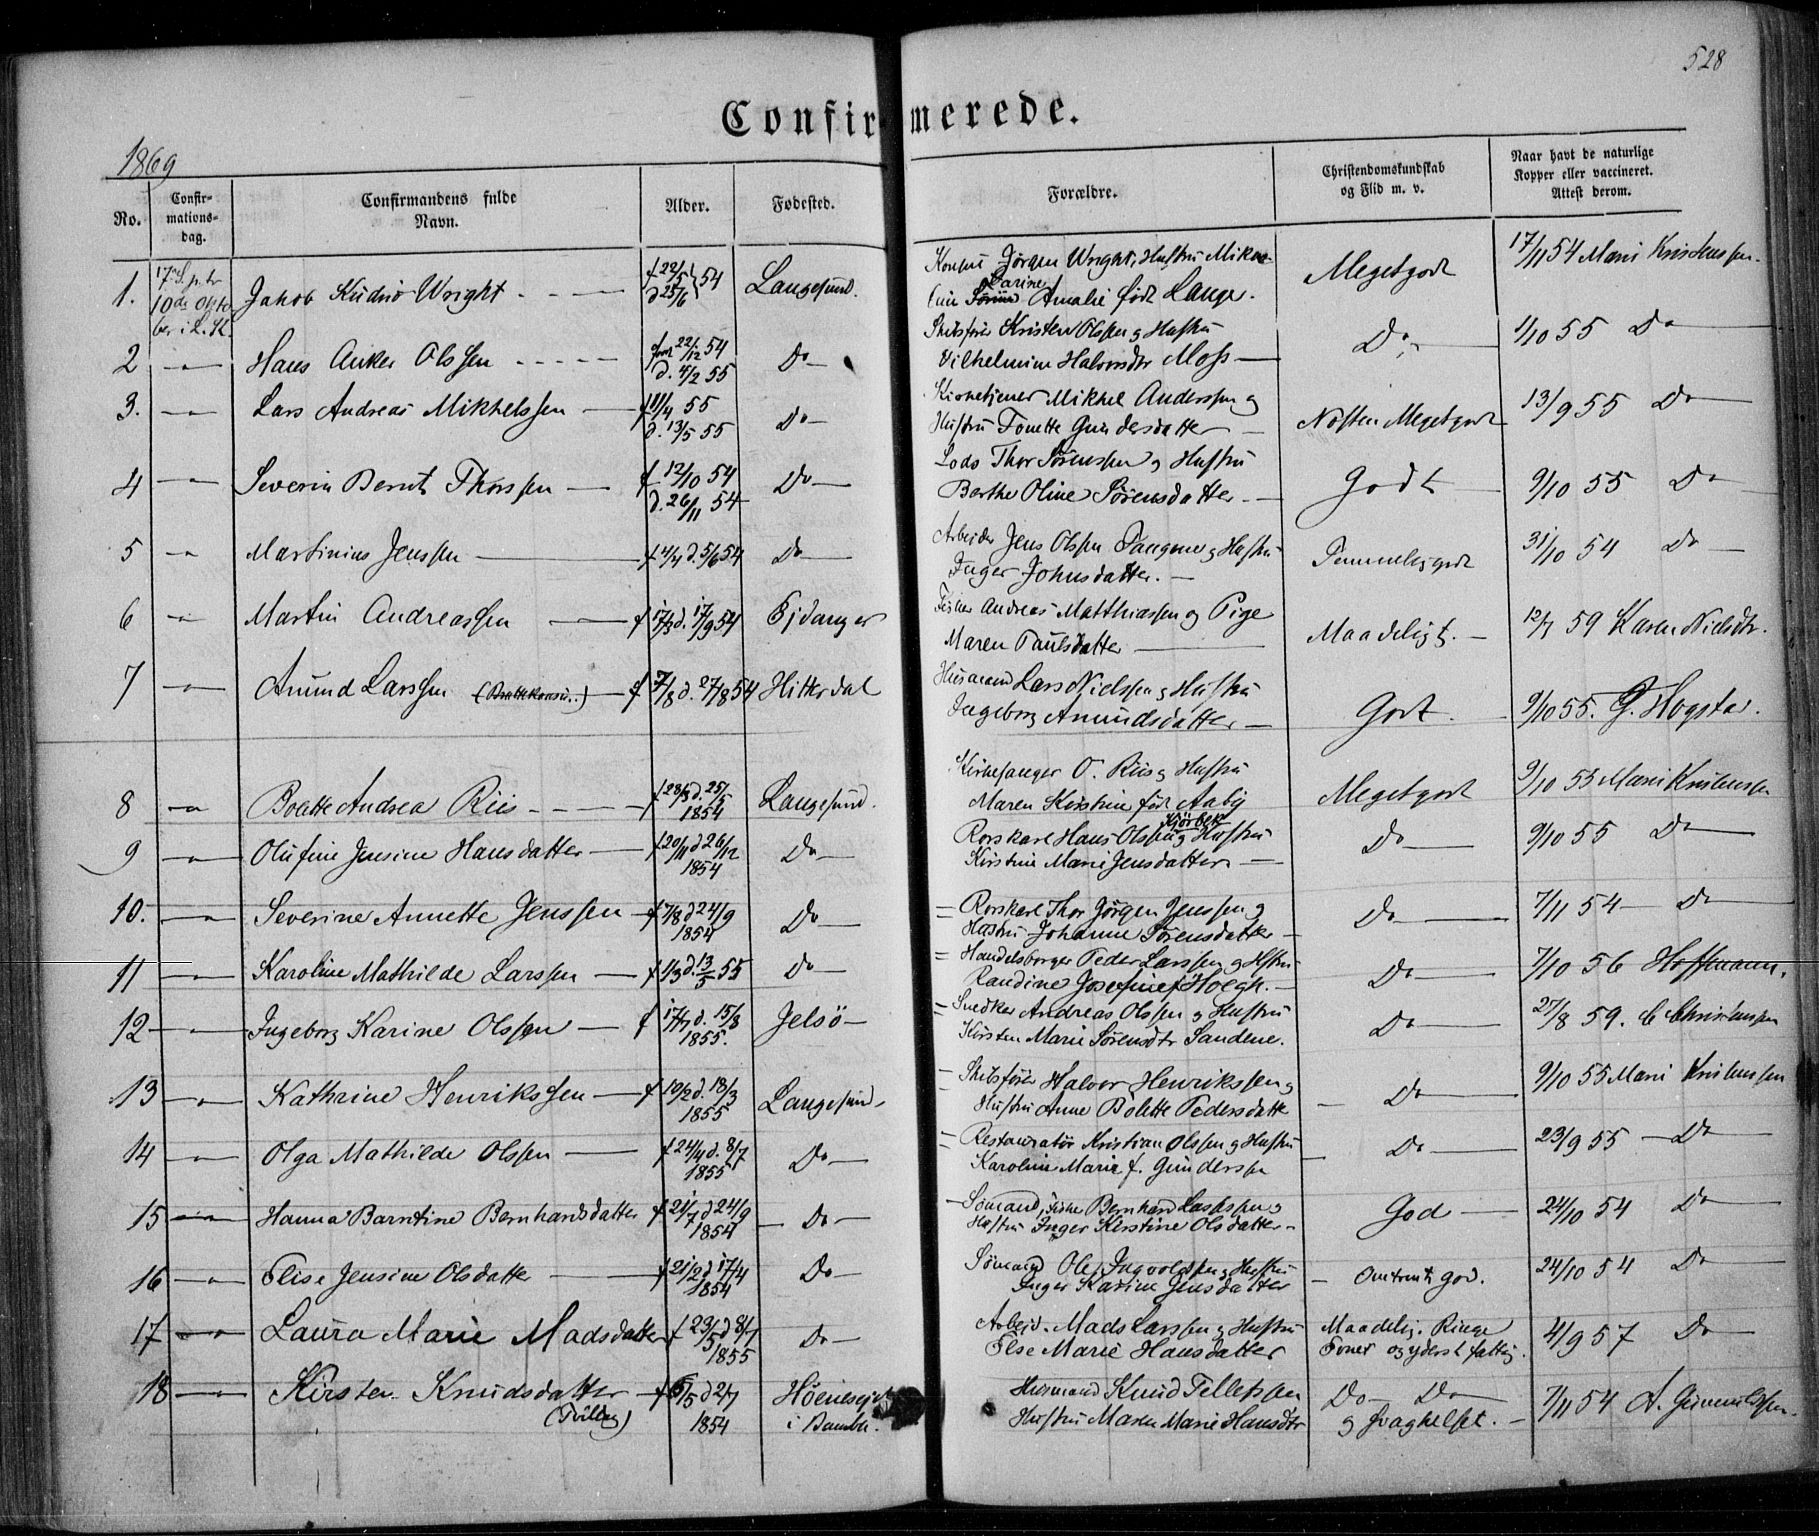 528
Confirmerede.
1869
No. Confirmations-dag. Confirmandens fulde Navn. Alder. Fødested. Forældre. Christendomskundskab og Flid m. v. Naar havt de naturlige Kopper eller vaccineret. Attest derom.
1. 10de Okto- Jakob Wright f 22/5 d 25/6 54 Langesund. Jörgen Wright, Hustru Amalie født Lange. Megetgodt 17/11 54 Marie Kristenssen.
2 -"- Hans Anker Olssen født 22/12 54 d. 4/2 55 Do Skibsfører Kristen Olssen og Hustru
Vilhelmine Halvorsdtr Moss Do 1/10 55 Do
3. -"- Lars Andreas Mikkelssen f 11/4 55 d. 13/5 55 Do Kirketjener Mikkel Anderssen og
Hustru Tonette Gundersdatter Næsten Megetgodt 13/9 55 Do
4 -"- Severin Bernt Thorssen f 12/10 54 d. 26/11 54 Do Lods Thor Sörenssen og Hustru
Berthe Oline Sörensdatter Godt 9/10 55 Do
5 -"- Martinius Jenssen f 4/4 d. 5/6 54 Do Arbeider Jens Olssen Tangene og Hustru
Inger Johnsdatter. Temmeliggodt 31/10 54 Do
6 -"- Martin Andreassen f 17/3 d. 17/9 54 Ejdanger Fisker Andreas Matthiassen og Pige
Maren Paulsdatter Maadeligt. 12/7 59 Karen Nielsdtr.
7 -"- Amund Larssen f 7/8 d. 27/8 54 Hitterdal Husmand Lars Nielssen og Hustru
Ingeborg Amundsdatter Godt. 9/10 55. G. Hogstad.
8 -"- Bolette Andrea Riis 1854 Langesund. Kirkesanger O. Riis og Hustru
Maren Kirstine født Aaby Megetgodt 9/10 55 Marie Kristenssen
9 -"- Olufine Jensine Hansdatter f 20/11 d 26/12 1854 Do Rorskarl Hans Olssen Kjörbek og Hustru
Kirstine Marie Jensdatter Do 9/10 55 Do
10. -"- Severine Annette Jenssen f 7/8 d 24/9 1854 Do Rorskarl Thor Jörgen Jenssen og
Hustru Johanne Sörensdatter Do 7/11 54 Do
11 -"- Karoline Mathilde Larssen f 1/3 d. 13/5 55 Do Handelsborger Peder Larssen og Hstru
Randine Josefine f Höegh. Do 7/10 56 Hoffmann.
12 -"- Ingeborg Karine Olssen f 17/7 d. 15/8 1855. Jelsö Snedker Andreas Olssen og Hustru
Kirsten Marie Sörensdtr Sandene. Do 27/8 59. C Christenssen
13 -"- Kathrine Henrikssen f 10/2 d. 18/3 1855 Langesund Skibsfører Halvor Henrikssen og
Hustru Anne Bolette Pedersdatter Do 9/10 55 Marie Kristenssen
14 -"- Olga Mathilde Olssen f 24/4 d. 8/7 1855 Do Restauratör Kristian Olssen og Hustru
Karoline Marie f. Gunderssen Do 23/9 55 Do
15 -"- Hanna Barntine Bernhardsdatter f 21/7 d 24/9 1854 Do Sömand, Fisker Bernhard
Hustru Inger Kerstine Olsdatter God 24/10 54 Do
16 -"- Elise Jensine Olsdatter f 21/2 d 17/4 1854 Do Sömand Ole Ingvoldssen og Hustru
Inger Karine Jensdatter Omtrent god. 24/10 54 Do
17 -"- Laura Marie Madsdatter f 23/5 d 8/7 1855 Do Arbejd. Mads Larssen og Hustru
Else Marie Hansdatter Maadelig. Ringe Evner og yderst fattig. 4/9 57 Do
18 -"- Kirsten Knudsdatter (Tvilling) f 6/5 d 2/7 1854 i Bamble. Husmand Knud Tellefssen
Hustru Maren Marie Hansdtr Do Do og svaghelset. 7/11 54